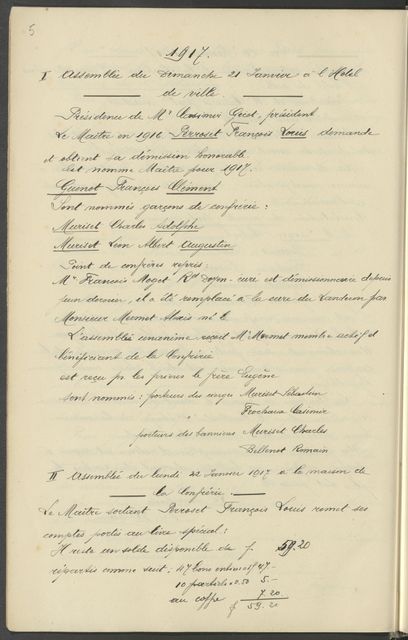 5
1917.
I Assemblée du Dimanche 21 Janvier à l'Hôtel
de ville
Présidence de Mr Casimir Gicot, président
Le Maître en 1916 Perroset François Louis demande
et obtient sa démission honorable
Est nommé Maître pour 1917.
Guenot François Clément
Sont nommés garçons de confrérie :
Muriset Charles Adolphe
Muriset Léon Albert Augustin
Point de confrères repris :
Mr François Moget Rd doyen-curé est démissionnaire depuis
juin dernier, il a été remplacé à la cure du Landeron par
Monsieur Mermet Alexis né le
L'assemblée unanime reçoit Mr Mermet membre actif et
bénéficiant de la Confrérie
est reçu pr les prières le frère Eugène
sont nommés : porteurs des cierges Muriset Sébastien
Frochaux Casimir
porteurs des bannières Muriset Charles
Bellenot Romain
II Assemblée du lundi 22 Janvier 1917 à la maison de
la Confrérie.
Le Maître sortant Perroset François Louis remet ses
comptes portés au livre spécial :
Il reste un solde disponible de f 59.20
répartis comme suit : 47 bons entiers à 1f 47.-
10 partiels à 0.50 5.-
au coffre 7.20
f 59.20